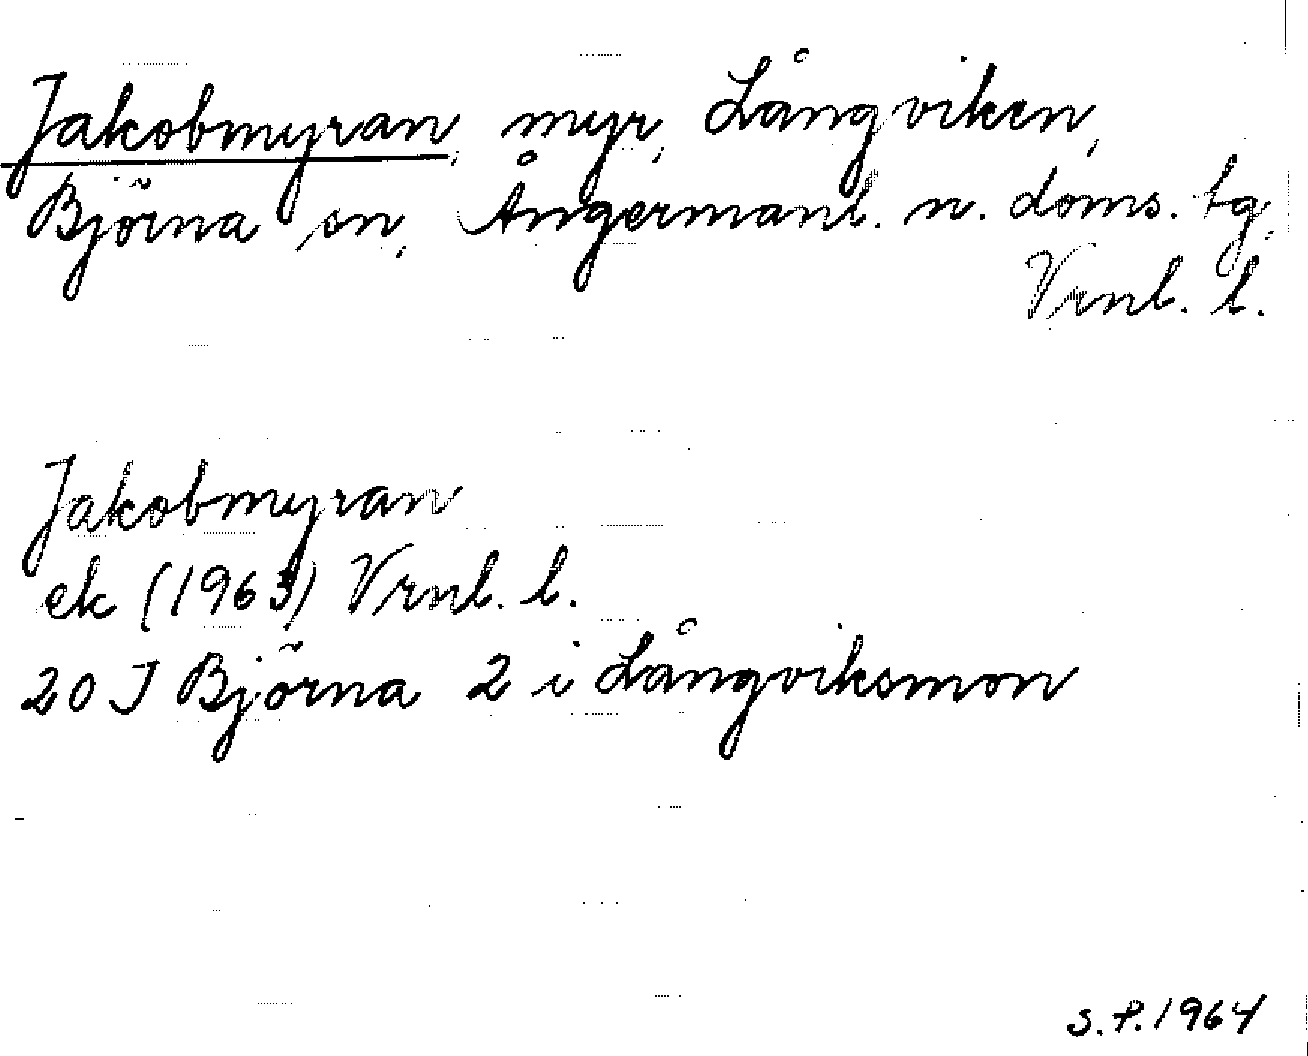 Jakobmyran, myr, Långviken,
Björna sn, Ångermanl. n. doms. tg,
Vrnl. l.
Jakobmyran
ek (1963) Vrnl. l.
20 J Björna 2 i Långviksmon
S.P. 1964